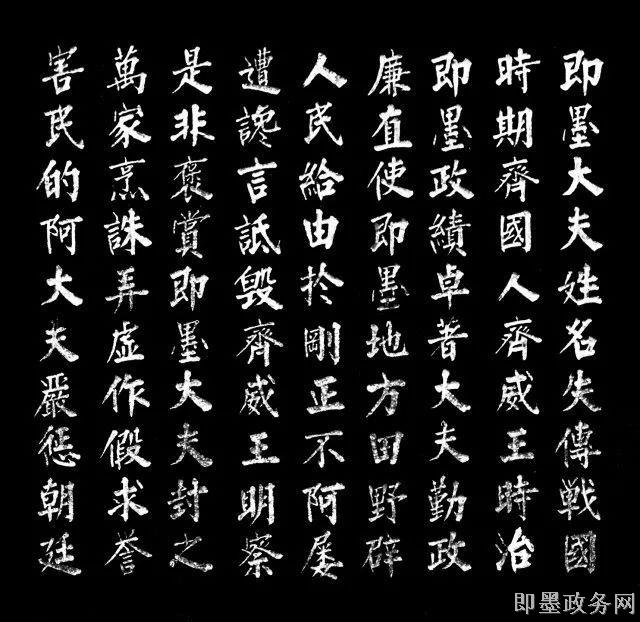 即墨大夫姓名失傳戰國
時期齊國人齊威王時治
即墨政績卓著大夫勤政
廉直使即墨地方田野辟
人民給由於剛正不阿屡
遭讒言詆毁齊威王明察
是非褒賞即墨大夫封之
萬家烹誅弄虛作假求誉
害民的阿大夫嚴惩朝廷
即墨政务网